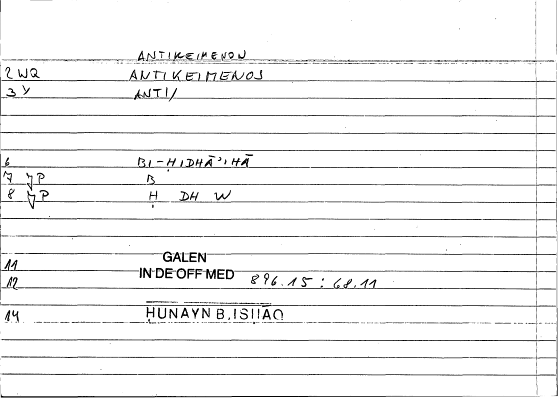 ANTIKEIMENON
2 WQ ANTIKEIMENOS
3 Y ANTI/
6 BI-ḤIDHĀʾIHĀ
7 P B
8 P Ḥ DH W
11 GALEN
12 IN DE OFF MED 896.15 : 68.11
14 ḤUNAYN B. ISḤĀQ